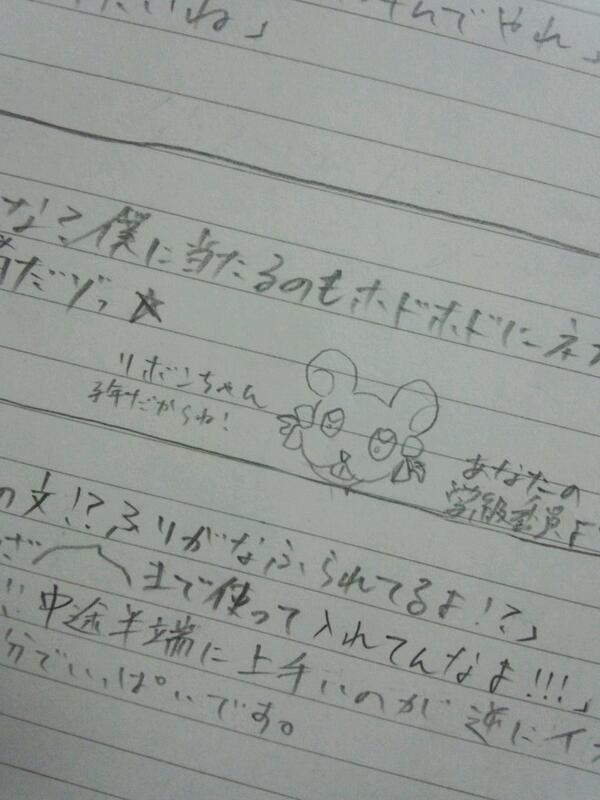 たいね」
んでやれ」
な？僕に当たるのもホドホドにネ
だゾっ☆
リボンちゃん
子年だからね！
あなたの
学級委員よ
の文!?ふりがなふられてるよ!?」
まで使って入れてんなよ!!!」
!!中途半端に上手いのが逆にイ
分でいっぱいです。